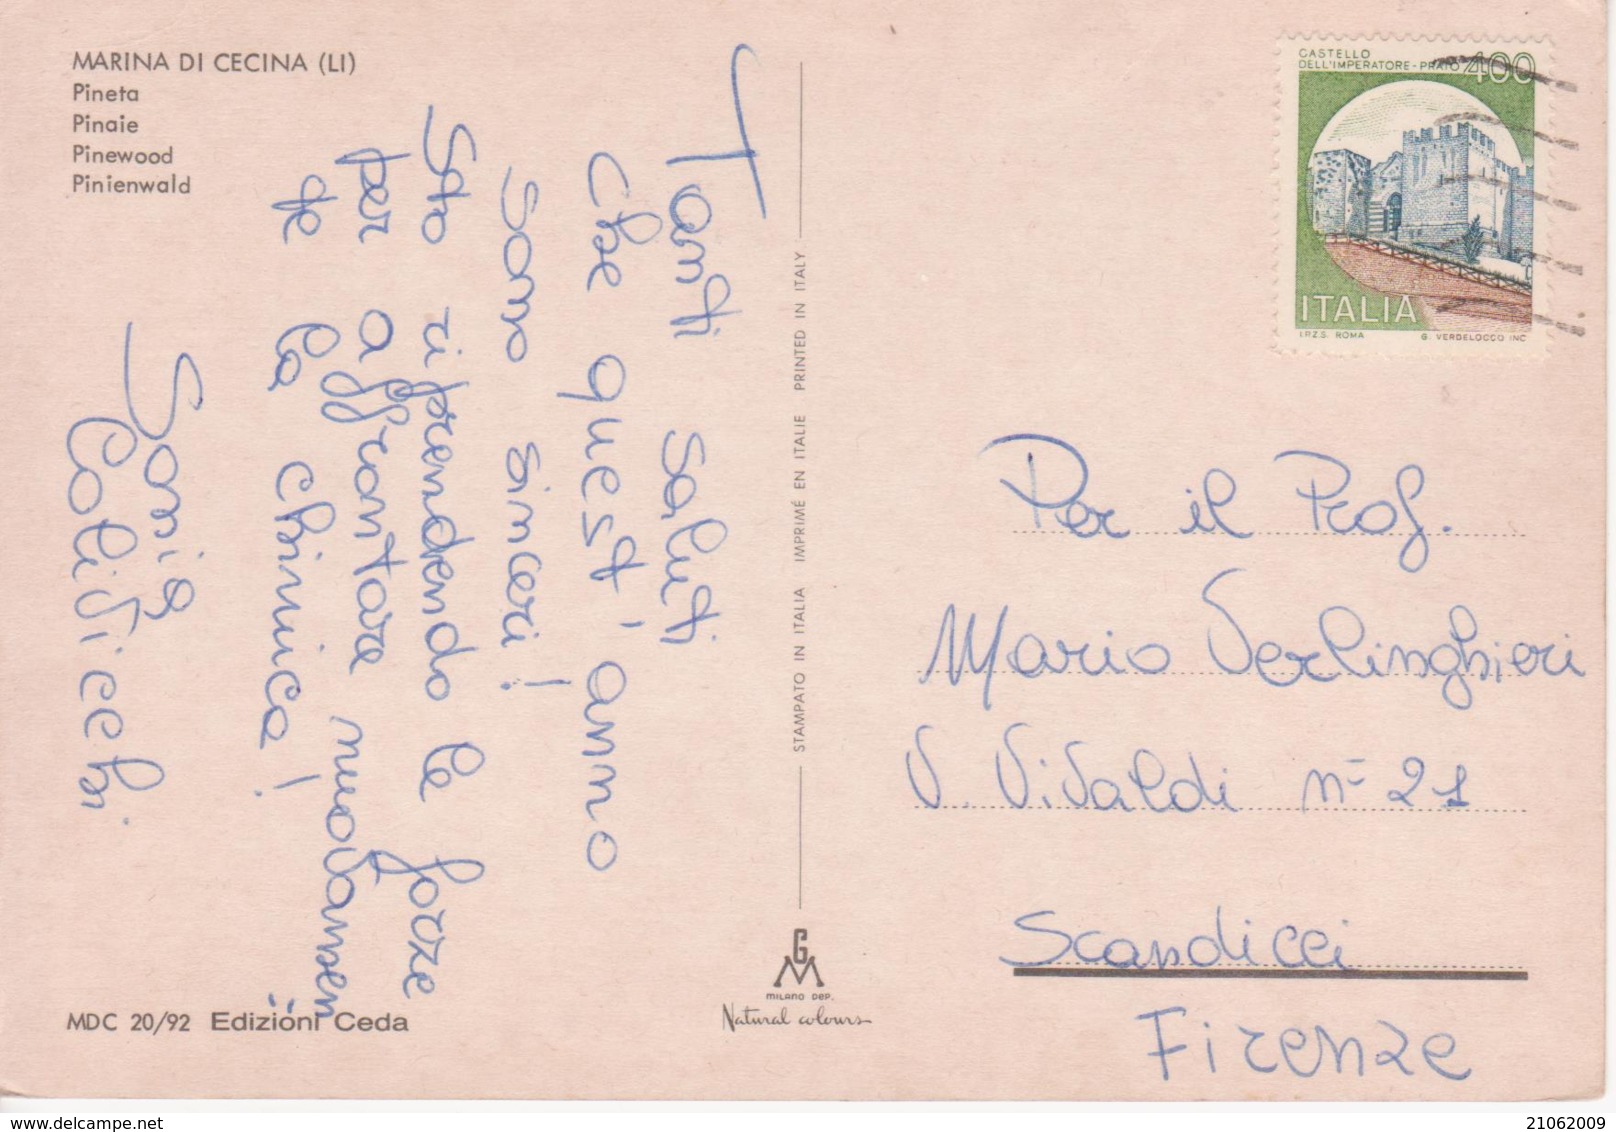 MARINA DI CECINA (LI)
Pineta
Pinaie
Pinewood
Pinienwald
Tanti saluti
che quest'anno
sono sinceri!
Sto riprendendo le forze
per affrontare nuovamen
te la chimica!
Sonia
MDC 20/92 Edizioni Ceda
STAMPATO IN ITALIA IMPRIMÉ EN ITALIE PRINTED IN ITALY
GM
MILANO DEP.
Natural colours
CASTELLO
DELL'IMPERATORE - PRATO 400
ITALIA
I.P.Z.S. ROMA G. VERDELOCCO INC
Per il Prof.
Mario Verlinghieri
V. Vivaldi n- 21
Scandicci
Firenze
21062009